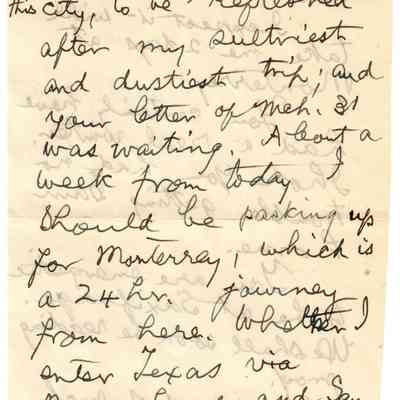 this city, to be refreshed
after my sultriest
and dustiest trip; and
your letter of Mch. 31
was waiting. About a
week from today I
should be packing up
for Monterrey, which is
a 24 hr. journey
from here. Whether I
enter Texas via
and